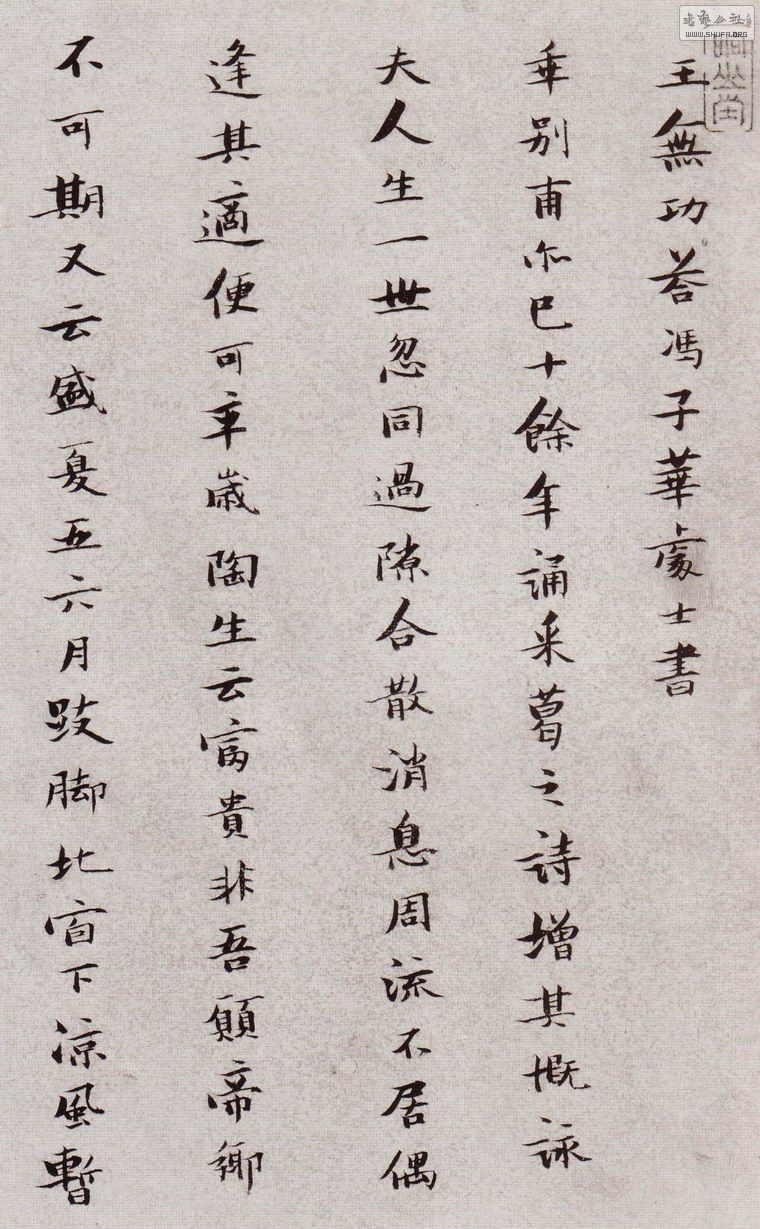 王無功荅馮子華處士書
乖別甫尔已十餘年誦采葛之詩增其慨詠
夫人生一世忽同過隙合散消息周流不居偶
逢其適便可卒歲陶生云富貴非吾願帝鄉
不可期又云盛夏五六月跂脚北窗下涼風暫
书艺公社
WWW.SHUFA.ORG